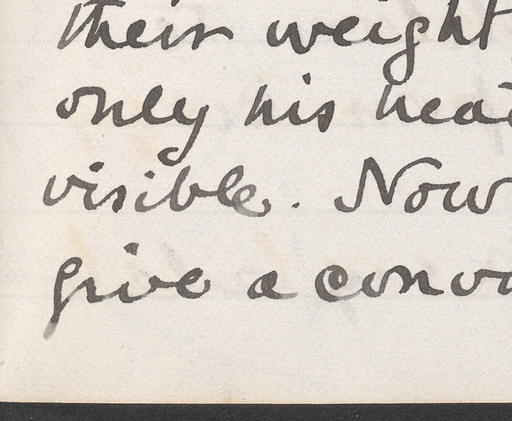 their weight
only his head
visible. Now
give a convo